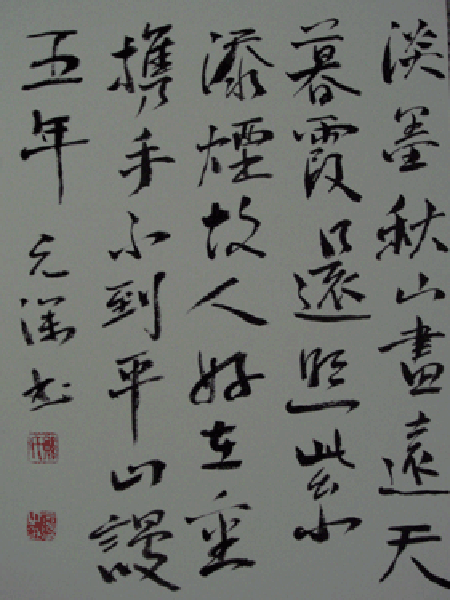 淡墨秋山畫遠天
暮霞還照紫
添煙故人好在重
携手不到平山謾
五年 元 书